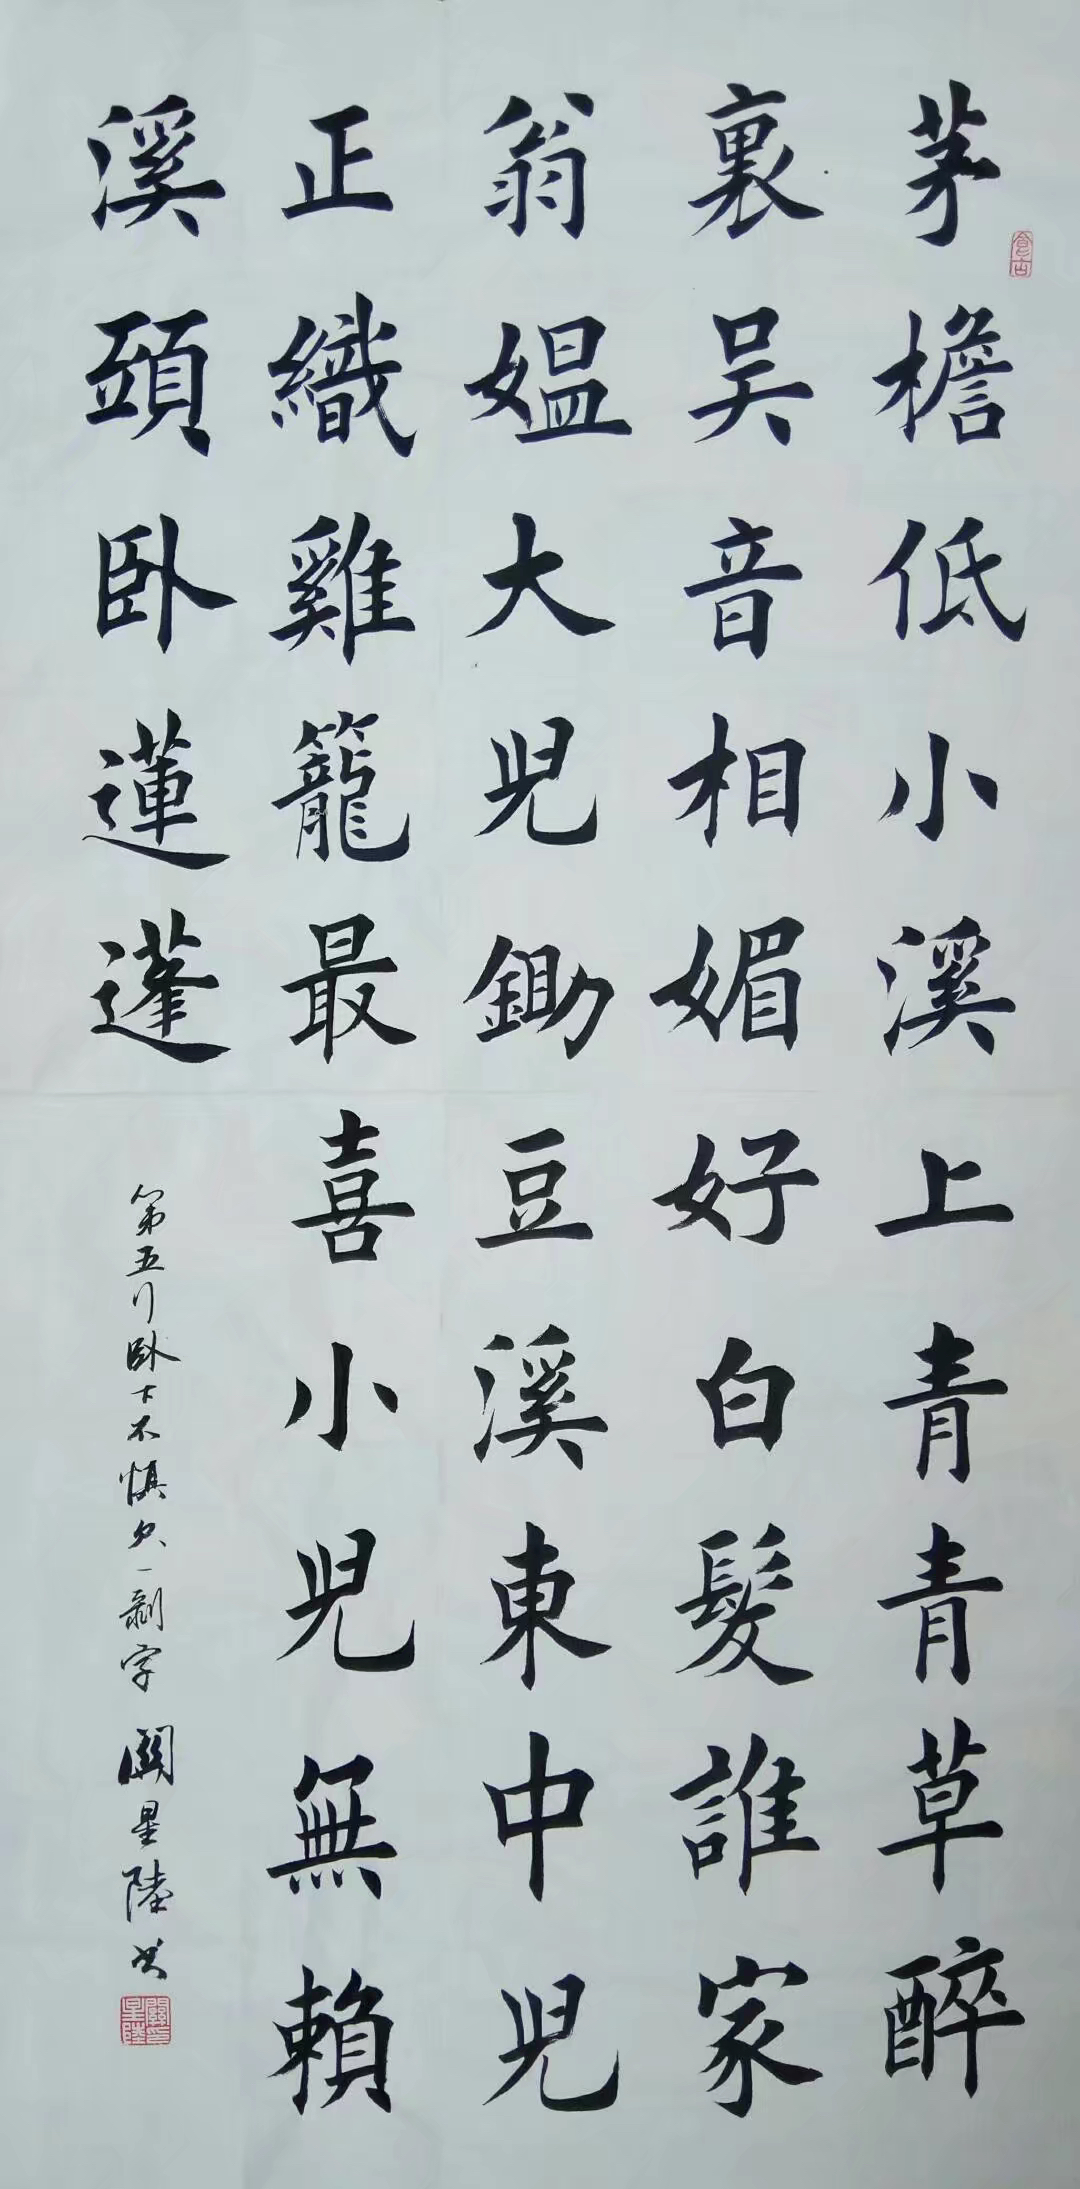 茅檐低小溪上青青草醉
裏吴音相媚好白髮誰家
翁媪大兒鋤豆溪東中兒
正織雞籠最喜小兒無賴
溪頭卧蓮蓬
第五行卧下不慎欠一剝字 關星陸书
關星陸印